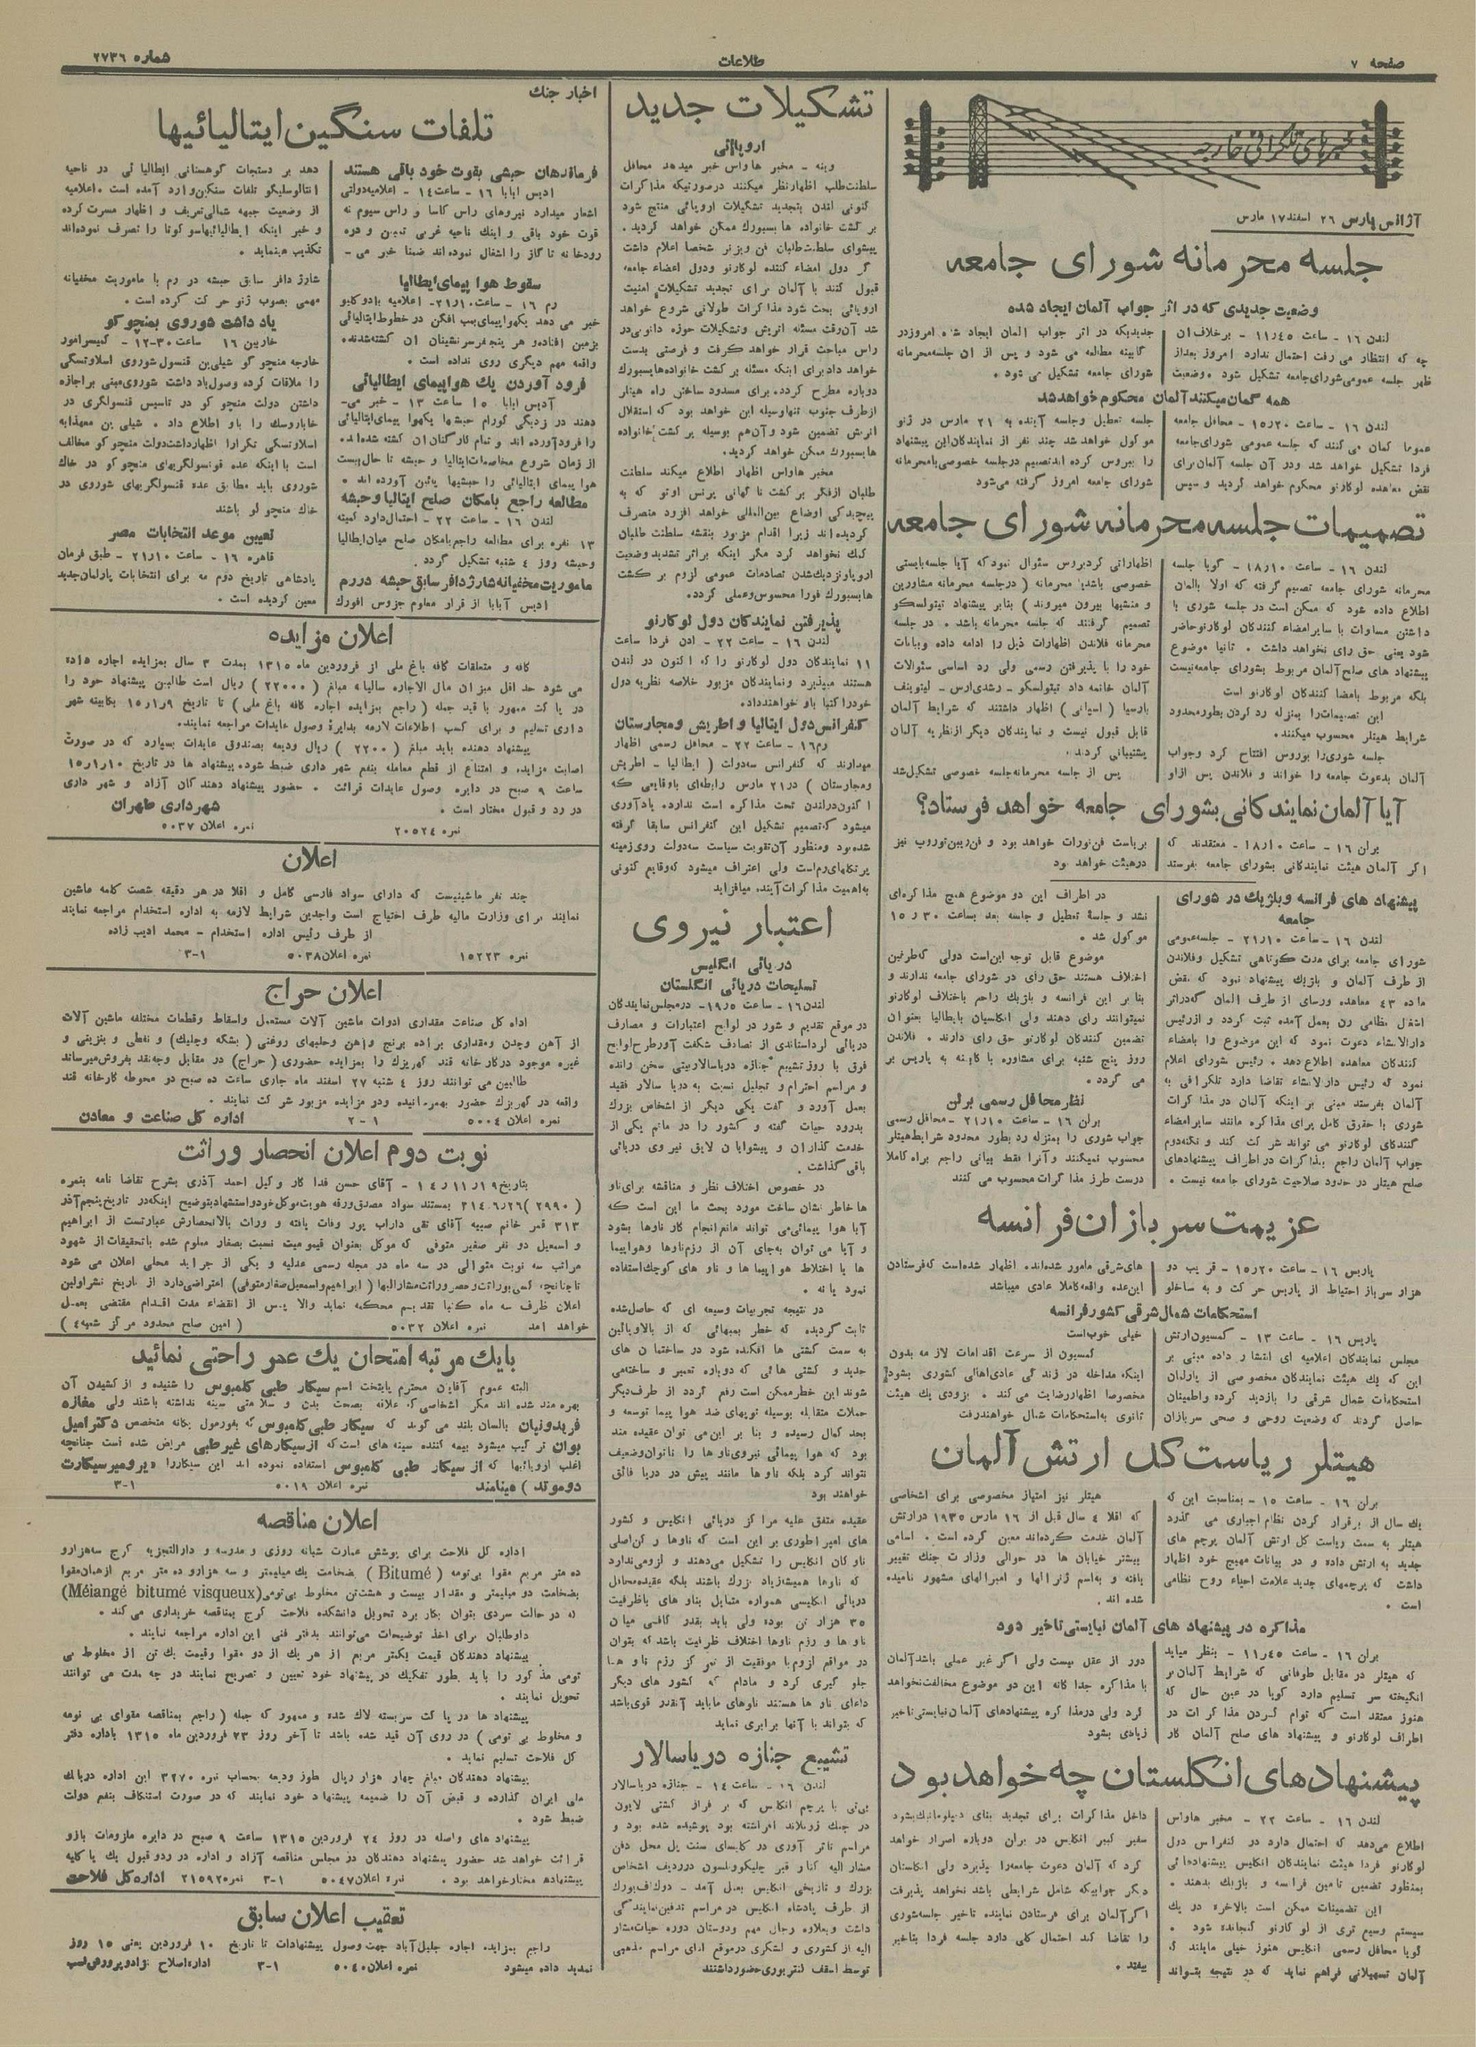 صفحه ۷
طلاعات
شماره ۲۷۳۶
خبرهای تلگرافی خارجه
آژانس پارس ۲۶ اسفند ۱۷ مارس
جلسه محرمانه شورای جامعه
وضعیت جدیدی که در اثر جواب آلمان ایجاد شده
لندن ۱۶ - ساعت ۱۱٫۴۵ - برخلاف آن
چه که انتظار می رفت احتمال ندارد امروز بعداز
ظهر جلسه عمومی شورای جامعه تشکیل شود . وضعیت
جدیدیکه در اثر جواب آلمان ایجاد شده امروز در
کابینه مطالعه می شود و پس از آن جلسه محرمانه
شورای جامعه تشکیل می شود .
همه گمان میکنند آلمان محکوم خواهد شد
لندن ۱۶ - ساعت ۱۵٫۲۰ - محافل جامعه
عموما گمان می کنند که جلسه عمومی شورای جامعه
فردا تشکیل خواهد شد ودر آن جلسه آلمان برای
نقض معاهده لوکارنو محکوم خواهد گردید و سپس
جلسه تعطیل وجلسه آینده به ۲۱ مارس در ژنو
موکول خواهد شد چند نفر از نمایندگان این پیشنهاد
را بیروس کرده اند تصمیم در جلسه خصوصی با محرمانه
شورای جامعه امروز گرفته می‌شود
تصمیمات جلسه محرمانه شورای جامعه
لندن ۱۶ - ساعت ۱۸٫۱۰ - گویا جلسه
محرمانه شورای جامعه تصمیم گرفته که اولا بآلمان
اطلاع داده شود که ممکن است در جلسه شوری با
داشتن مساوات با سایر امضاء کنندگان لوکارنو حاضر
شود یعنی حق رای نخواهد داشت . ثانیا موضوع
پیشنهاد های صلح آلمان مربوط بشورای جامعه نیست
بلکه مربوط بامضا کنندگان لوکارنو است
این تصمیمات را بمنزله رد کردن بطور محدود
شرایط هیتلر محسوب میکنند.
جلسه شوری را بوروس افتتاح کرد وجواب
آلمان بدعوت جامعه را خواند و فلاندن پس ازاو
اظهاراتی کرد بروس سئوال نمود که آیا جلسه بایستی
خصوصی باشد یا محرمانه ( در جلسه محرمانه مشاورین
و منشیها بیرون میروند ) بنابر پیشنهاد تیتولسکو
تصمیم گرفتند که جلسه محرمانه باشد . در جلسه
محرمانه فلاندن اظهارات ذیل را ادامه داده وبیانات
خود را با پذیرفتن رسمی ولی رد اساسی سئوالات
آلمان خاتمه داد تیتولسکو - رشدی ارس - لیتوینف
بارسیا ( اسپانی ) اظهار داشتند که شرایط آلمان
قابل قبول نیست و نمایندگان دیگر از نظریه آلمان
پشتیبانی کردند.
پس از جلسه محرمانه جلسه خصوصی تشکیل شد
آیا آلمان نمایندگانی بشورای جامعه خواهد فرستاد؟
برلن ۱۶ - ساعت ۱۸٫۱۰ - معتقدند که
اگر آلمان هیئت نمایندگانی بشورای جامعه بفرستد
بریاست فن نورات خواهد بود و فن ریبن تروپ نیز
در هیئت خواهد بود
پیشنهاد های فرانسه وبلژیک در شورای
جامعه
لندن ۱۶ - ساعت ۲۱٫۱۰ - جلسه عمومی
شورای جامعه برای مدت کوتاهی تشکیل وفلاندن
از طرف آلمان و بلژیک پیشنهاد نمود که نقض
ماده ۴۳ معاهده ورسای از طرف آلمان که در اثر
اشغال نظامی رن بعمل آمده ثبت گردد و از رئیس
دارالانشاء دعوت نمود که این موضوع را بامضاء
کنندگان معاهده اطلاع دهد . رئیس شورای اعلام
نمود که رئیس دارالانشاء تقاضا دارد تلگرافی به
آلمان بفرستد مبنی بر اینکه آلمان در مذاکرات
شوری با حقوق کامل برای مذاکره مانند سایر امضاء
کنندگان لوکارنو می تواند شرکت کند و نکته دوم
جواب آلمان راجع بمذاکرات در اطراف پیشنهادهای
صلح هیتلر در حدود صلاحیت شورای جامعه نیست .
در اطراف این دو موضوع هیچ مذاکره‌ای
نشد و جلسه تعطیل و جلسه بعد بساعت ۱۵٫۳۰
موکول شد .
موضوع قابل توجه این است دولی که طرفین
اختلاف هستند حق رای در شورای جامعه ندارند و
بنا بر این فرانسه و بلژیک راجع باختلاف لوکارنو
نمیتوانند رای دهند ولی انگلیس با ایتالیا بعنوان
تضمین کنندگان لوکارنو حق رای دارند . فلاندن
روز پنج شنبه برای مشاوره با کابینه به پاریس بر
می گردد .
نظر محافل رسمی برلن
برلن ۱۶ - ساعت ۲۱٫۱۰ - محافل رسمی
جواب شوری را بمنزله رد بطور محدود شرایط هیتلر
محسوب نمیکنند وآنرا فقط بیانی راجع براه کاملا
درست طرز مذاکرات محسوب می کنند
عزیمت سربازان فرانسه
پاریس ۱۶ - ساعت ۱۵٫۲۰ - قریب دو
هزار سرباز احتیاط از پاریس حرکت و به ساخلو
های شرقی مامور شده‌اند. اظهار شده است که فرستادن
این عده واقعه کاملا عادی میباشد
استحکامات شمال شرقی کشور فرانسه
پاریس ۱۶ - ساعت ۱۳ - کمسیون ارتش
مجلس نمایندگان اعلامیه ای انتشار داده مبنی بر
این که یک هیئت نمایندگان مخصوصی از پارلمان
استحکامات شمال شرقی را بازدید کرده واطمینان
حاصل کردند که وضعیت روحی و صحی سربازان
خیلی خوب است
کمسیون از سرعت اقدامات لازمه بدون
اینکه مداخله در زندگی عادی اهالی کشوری بشود
مخصوصا اظهار رضایت می کند . بزودی یک هیئت
ثانوی به استحکامات شمال خواهند رفت
هیتلر ریاست کل ارتش آلمان
برلن ۱۶ - ساعت ۱۵ - بمناسبت این که
یک سال از برقرار کردن نظام اجباری می گذرد
هیتلر به سمت ریاست کل ارتش آلمان پرچم های
جدید به ارتش داده و در بیانات مهیج خود اظهار
داشت که پرچمهای جدید علامت احیاء روح نظامی
است .
هیتلر نیز امتیاز مخصوصی برای اشخاصی
که اقلا ۴ سال قبل از ۱۶ مارس ۱۹۳۵ در ارتش
آلمان خدمت کرده‌اند معین کرده است . اسامی
بیشتر خیابان ها در حوالی وزارت جنگ تغییر
یافته و به اسم ژنرالها و امیرالهای مشهور نامیده
شده اند .
مذاکره در پیشنهاد های آلمان نبایستی تاخیر شود
برلن ۱۶ - ساعت ۱۱٫۴۵ - بنظر میاید
که هیتلر در مقابل طوفانی که شرایط آلمان بر
انگیخته سر تسلیم دارد گویا در عین حال که
هنوز معتقد است که توام کردن مذاکرات در
اطراف لوکارنو و پیشنهاد های صلح آلمان کار
دور از عقل نیست ولی اگر غیر عملی باشد آلمان
با مذاکره جداگانه این دو موضوع مخالفت نخواهد
کرد ولی در مذاکره پیشنهادهای آلمان نبایستی تاخیر
زیادی بشود
پیشنهادهای انگلستان چه خواهد بود
لندن ۱۶ - ساعت ۲۲ - مخبر هاواس
اطلاع می‌دهد که احتمال دارد در کنفرانس دول
لوکارنو فردا هیئت نمایندگان انگلیس پیشنهادهائی
بمنظور تضمین تامین فرانسه و بلژیک بدهند .
این تضمینات ممکن است بالاخره در یک
سیستم وسیع تری از لوکارنو گنجانده شود .
گویا محافل رسمی انگلیس هنوز خیلی مایلند که
آلمان تسهیلاتی فراهم نماید که در نتیجه بتواند
داخل مذاکرات برای تجدید بنای دیپلوماتیک بشود
سفیر کبیر انگلیس در برلن دوباره اصرار خواهد
کرد که آلمان دعوت جامعه را پذیرد ولی انگلستان
دیگر جوابیکه شامل شرایطی باشد نخواهد پذیرفت
اگر آلمان برای فرستادن نماینده تاخیر جلسه شوری
را تقاضا کند احتمال کلی دارد جلسه فردا بتاخیر
بیفتد .
تشکیلات جدید
اروپائی
وینه - مخبر هاواس خبر میدهد محافل
سلطنت طلب اظهار نظر میکنند در صورتیکه مذاکرات
کنونی لندن بتجدید تشکیلات اروپائی منتج شود
برگشت خانواده هابسبورک ممکن خواهد گردید.
پیشوای سلطنت طلبان فن ویزنر شخصا اعلام داشت
گر دول امضاء کننده لوکارنو ودول اعضاء جامعه
قبول کنند با آلمان برای تجدید تشکیلات امنیت
اروپائی بحث شود مذاکرات طولانی شروع خواهد
شد آن‌وقت مسئله اتریش وتشکیلات حوزه دانوبی در
راس مباحث قرار خواهد گرفت و فرصتی بدست
خواهد داد برای اینکه مسئله برگشت خانواده هابسبورک
دوباره مطرح گردد. برای مسدود ساختن راه هیتلر
از طرف جنوب تنها وسیله این خواهد بود که استقلال
اتریش تضمین شود و آن هم بوسیله برگشت خانواده
هابسبورک ممکن خواهد گردید.
مخبر هاواس اظهار اطلاع میکند سلطنت
طلبان از فکر برگشت ناگهانی پرنس اوتو که به
پیچیدگی اوضاع بین‌المللی خواهد افزود منصرف
گردیده‌اند زیرا اقدام مزبور بنقشه سلطنت طلبان
کمک نخواهد کرد مگر اینکه براثر تشدید وضعیت
اروپا و نزدیک شدن تصادمات عمومی لزوم برگشت
هابسبورک فورا محسوس وعملی گردد.
پذیرفتن نمایندگان دول لوکارنو
لندن ۱۶ - ساعت ۲۲ - ادن فردا ساعت
۱۱ نمایندگان دول لوکارنو را که اکنون در لندن
هستند میپذیرد ونمایندگان مزبور خلاصه نظریه دول
خود را کتبا باو خواهند داد.
کنفرانس دول ایتالیا و اطریش و مجارستان
رم ۱۶ - ساعت ۲۲ - محافل رسمی اظهار
میدارند که کنفرانس سه دولت ( ایطالیا - اطریش
ومجارستان ) در ۲۱ مارس رابطه‌ای با وقایعی که
اکنون در لندن تحت مذاکره است ندارد. یادآوری
میشود که تصمیم تشکیل این کنفرانس سابقا گرفته
شده بود ومنظور آن تقویت سیاست سه دولت روی زمینه
پرتکلهای رم است ولی اعتراف میشود که وقایع کنونی
به اهمیت مذاکرات آینده میافزاید
اعتبار نیروی
دریائی انگلیس
تسلیحات دریائی انگلستان
لندن ۱۶ - ساعت ۱۹٫۵ - در مجلس نمایندگان
در موقع تقدیم و شور در لوایح اعتبارات و مصارف
دریائی لرد استانلدی از تصادف شگفت آور طرح لوایح
فوق با روز تشییع جنازه دریاسالار بیتی سخن رانده
و مراسم احترام و تجلیل نسبت به دریا سالار فقید
بعمل آورد و گفت یکی دیگر از اشخاص بزرک
بدرود حیات گفته و کشور را در ماتم یکی از
خدمت گذاران و پیشوایان لایق نیروی دریائی
باقی گذاشت .
در خصوص اختلاف نظر و مناقشه برای ناو
ها خاطر نشان ساخت مورد بحث ما این است که
آیا هوا پیمائی می‌تواند مانع انجام کار ناوها بشود
و آیا می توان به جای آن از رزم ناوها وهواپیما
ها یا اختلاط هواپیما ها و ناو های کوچک استفاده
نمود یا نه .
در نتیجه تجربیات وسیعه ای که حاصل شده
ثابت گردیده که خطر بمبهائی که از بالا و پائین
به سمت کشتی ها افکنده شود در ساختمان های
جدید و کشتی هائی که دوباره تعمیر و ساخته می
شوند این خطر ممکن است رفع گردد از طرف دیگر
حملات متقابله بوسیله توپهای ضد هوا پیما توسعه و
بحد کمال رسیده و بنا بر این می توان عقیده مند
بود که هوا پیمائی نیروی ناو ها را ناتوان وضعیف
نتواند کرد بلکه ناو ها مانند پیش در دریا فائق
خواهند بود
عقیده متفق علیه مراکز دریائی انگلیس و کشور
های امپراطوری بر این است که ناوها و کن اصلی
ناوگان انگلیس را تشکیل می‌دهند و لزومی ندارد
که ناوها همیشه زیاد بزرک باشند بلکه عقیده محافل
دریائی انگلیسی همواره متمایل بناو های باظرفیت
۳۵ هزار تن بوده ولی باید بقدر کافی میان
ناوها و رزم ناوها اختلاف ظرفیت باشد که بتوان
در مواقع لزوم با موفقیت از تمرکز رزم ناو ها
جلو گیری کرد و مادام که کشور های دیگر
دارای ناو ها هستند ناوهای ما باید آنقدر قوی باشد
که بتواند با آنها برابری نماید
تشییع جنازه دریاسالار
لندن ۱۶ - ساعت ۱۴ - جنازه دریاسالار
بی‌تی با پرچم انگلیس که بر فراز کشتی لایون
در جنک ژوتلاند افراشته بود پوشیده شده بود و
مراسم تاثر آوری در کلیسای سنت پل محل دفن
مشار الیه کنار قبر جلیکو ونلسون در ردیف اشخاص
بزرک و تاریخی انگلیس بعمل آمد - دوک اف یورک
از طرف پادشاه انگلیس در مراسم تدفین نمایندگی
داشت و بعلاوه رجال مهم ودوستان دوره حیات مشار
الیه از کشوری و لشکری در موقع ادای مراسم مذهبی
توسط اسقف کنتربوری حضور داشتند
اخبار جنک
تلفات سنگین ایتالیائیها
فرماندهان حبشی بقوت خود باقی هستند
ادیس ابابا ۱۶ - ساعت ۱۴ - اعلامیه دولتی
اشعار میدارد نیروهای راس کاسا و راس سیوم نه
قوت خود باقی و اینک ناحیه غربی تمبین و دره
رودخانه تاگاز را اشغال نموده اند ضمنا خبر می -
سقوط هوا پیمای ایطالیا
رم ۱۶ - ساعت ۲۱٫۱۰ - اعلامیه بادوگلیو
خبر می دهد یکهواپیمای بمب افکن در خطوط ایتالیائی
بزمین افتاده و هر پنجنفر سرنشینان آن کشته شدند.
واقعه مهم دیگری روی نداده است .
فرود آوردن یک هواپیمای ایطالیائی
آدیس ابابا ۱۵ ساعت ۱۳ - خبر می-
دهند در نزدیکی کورام حبشیها یکهوا پیمای ایتالیائی
را فرود آورده اند و تمام کارکنان آن کشته شده‌اند.
از زمان شروع مخاصمات ایتالیا و حبشه تا حال بیست
هوا پیمای ایتالیائی را حبشیها پائین آورده اند .
مطالعه راجع بامکان صلح ایتالیا وحبشه
لندن ۱۶ - ساعت ۲۲ - احتمال دارد کمیته
۱۳ نفره برای مطالعه راجع بامکان صلح میان ایطالیا
وحبشه روز ۴ شنبه تشکیل گردد .
ماموریت مخفیانه شارژ دافر سابق حبشه در رم
ادیس آبابا از قرار معلوم جزوس افورک
دهد بر دستجات کوهستانی ایطالیائی در ناحیه
انتالوسلیکو تلفات سنگین وارد آمده است . اعلامیه
از وضعیت جبهه شمالی تعریف و اظهار مسرت کرده
و خبر اینکه ایطالیائیها سوکوتا را تصرف نموده‌اند
تکذیب مینماید .
شارژ دافر سابق حبشه در رم با ماموریت مخفیانه
مهمی بصوب ژنو حرکت کرده است .
یاد داشت شوروی بمنچوکو
خاربین ۱۶ ساعت ۱۲٫۳۰ - کمیسر امور
خارجه منچو کو شیلی بن قنسول شوروی اسلاوتسکی
را ملاقات کرده وصول یاد داشت شوروی مبنی بر اجازه
داشتن دولت منچو کو در تاسیس قنسولگری در
خاباروسک را باو اطلاع داد . شیلی بن معهذا به
اسلاوتسکی تکرارا اظهار داشت دولت منچو کو مخالف
است با اینکه عده قونسولگریهای منچو کو در خاک
شوروی باید مطابق عده قنسولگریهای شوروی در
خاک منچو کو باشند
تعیین موعد انتخابات مصر
قاهره ۱۶ - ساعت ۲۱٫۱۰ - طبق فرمان
پادشاهی تاریخ دوم مه برای انتخابات پارلمان جدید
معین گردیده است .
اعلان مزایده
کافه و متعلقات کافه باغ ملی از فروردین ماه ۱۳۱۵ بمدت ۳ سال بمزایده اجاره داده
می شود حد اقل میزان مال الاجاره سالیانه مبلغ ( ۲۲۰۰۰ ) ریال است طالبین پیشنهاد خود را
در پاکت ممهور با قید جمله ( راجع بمزایده اجاره کافه باغ ملی ) تا تاریخ ۱۵٫۱٫۹ بکابینه شهر
داری تسلیم و برای کسب اطلاعات لازمه بدایرهٔ وصول عایدات مراجعه نمایند.
پیشنهاد دهنده باید مبلغ ( ۲۲۰۰ ) ریال ودیعه بصندوق عایدات بسپارد که در صورت
اصابت مزایده و امتناع از قطع معامله بنفع شهر داری ضبط شود. پیشنهاد ها در تاریخ ۱۵٫۱٫۱۰
ساعت ۹ صبح در دایره وصول عایدات قرائت . حضور پیشنهاد دهندگان آزاد و شهر داری
در رد و قبول مختار است .
شهرداری طهران
نمره ۲۰۵۲۴
نمره اعلان ۵۰۳۷
اعلان
چند نفر ماشینیست که دارای سواد فارسی کامل و اقلا در هر دقیقه شصت کلمه ماشین
نمایند برای وزارت مالیه طرف احتیاج است واجدین شرایط لازمه به اداره استخدام مراجعه نمایند
از طرف رئیس اداره استخدام - محمد ادیب زاده
نمره ۱۵۲۲۳
نمره اعلان ۵۰۳۸
۳-۱
اعلان حراج
اداره کل صناعت مقداری ادوات ماشین آلات مستعمل واسقاط وقطعات مختلفه ماشین آلات
از آهن وچدن ومقداری براده برنج وآهن وحلبهای روغنی (بشکه وچلیک) و نفطی و بنزینی و
غیره موجود در کارخانه قند کهریزک را بمزایده حضوری (حراج) در مقابل وجه نقد بفروش میرساند
طالبین می توانند روز ۴ شنبه ۲۷ اسفند ماه جاری ساعت ده صبح در محوطه کارخانه قند
واقعه در کهریزک حضور بهمرسانیده ودر مزایده مزبور شرکت نمایند .
نمره اعلان ۵۰۰۴
۲-۱
اداره کل صناعت و معادن
نوبت دوم اعلان انحصار وراثت
بتاریخ ۱۴٫۱۱٫۱۹ - آقای حسن فدا کار وکیل احمد آذری بشرح تقاضا نامه بنمره
( ۲۹۹۰ ) ۳۱۴٫۶٫۲۶ بمستند سواد مصدق ورقه هویت موکل خود و استشهاد بتوضیح اینکه در تاریخ پنجم آذر
۳۱۳ قمر خانم صبیه آقای تقی داراب پور وفات یافته و وراث بالانحصار عبارتست از ابراهیم
و اسمعیل دو نفر صغیر متوفی که موکل بعنوان قیمومیت نسبت بصغار معلوم شده با تحقیقات از شهود
مراتب سه نوبت متوالی در سه ماه در مجله رسمی عدلیه و یکی از جراید محلی اعلان می شود
تا چنانچه کسی بوراثت وحصر وراثت مشارالیها (ابراهیم و اسمعیل صغار متوفی) اعتراضی دارد از تاریخ نشر اولین
اعلان ظرف سه ماه کتبا تقدیم محکمه نماید والا پس از انقضاء مدت اقدام مقتضی بعمل
خواهد آمد
نمره اعلان ۵۰۳۲
( امین صلح محدود مرکز شعبه ۴ )
بایک مرتبه امتحان یک عمر راحتی نمائید
البته عموم آقایان محترم پایتخت اسم سیگار طبی کلمبوس را شنیده و از کشیدن آن
بهره مند شده اند مگر اشخاصی که علاقه بصحت بدن و سلامتی سینه نداشته باشند ولی مغازه
فریدونیان بالسان بلند می گوید که سیگار طبی کلمبوس که بفورمول یگانه متخصص دکتر امیل
بوان ترکیب میشود بیمه کننده سینه های است که از سیگارهای غیر طبی مریض شده است چنانچه
اغلب اروپائیها که از سیگار طبی کلمبوس استفاده نموده اند این سیگار را «پرومیر سیگارت
دوموند» مینامند
نمره اعلان ۵۰۱۹
۳-۱
اعلان مناقصه
اداره کل فلاحت برای پوشش عمارت شبانه روزی و مدرسه و دارالتجزیه کرج سه هزار و
ده متر مربع مقوا بی‌تومه ( Bitumé ) بضخامت یک میلیمتر و سه هزار و ده متر مربع از همان مقوا
بضخامت دو میلیمتر و مقدار بیست و هشت تن مخلوط بی‌تومی (Méiangé bitumé visqueux)
که در حالت سردی بتوان بکار برد تحویل دانشکده فلاحت کرج بمناقصه خریداری می کند .
داوطلبان برای اخذ توضیحات می‌توانند بدفتر فنی این اداره مراجعه نمایند .
پیشنهاد دهندگان قیمت یکمتر مربع از هر یک از دو مقوا وقیمت یک تن از مخلوط بی
تومی مذکور را باید بطور تفکیک در پیشنهاد خود تعیین و تصریح نمایند در چه مدت می توانند
تحویل نمایند .
پیشنهاد ها در پاکت سربسته لاک شده و ممهور که جمله ( راجع بمناقصه مقوای بی تومه
و مخلوط بی تومی ) در روی آن قید شده باشد تا آخر روز ۲۳ فروردین ماه ۱۳۱۵ باداره دفتر
کل فلاحت تسلیم نماید .
پیشنهاد دهندگان مبلغ چهار هزار ریال بطور ودیعه بحساب نمره ۳۲۷۰ این اداره در بانک
ملی ایران گذارده و قبض آن را ضمیمه پیشنهاد خود نمایند که در صورت استنکاف بنفع دولت
ضبط شود .
پیشنهاد های واصله در روز ۲۴ فروردین ۱۳۱۵ ساعت ۹ صبح در دایره ملزومات باز و
قرائت خواهد شد حضور پیشنهاد دهندگان در مجلس مناقصه آزاد و اداره در رد و قبول یک یا کلیه
پیشنهادها مختار خواهد بود .
نمره اعلان ۵۰۴۷
۳-۱
نمره ۲۱۵۹۲
اداره کل فلاحت
تعقیب اعلان سابق
راجع بمزایده اجاره جلیل آباد جهت وصول پیشنهادات تا تاریخ ۱۰ فروردین یعنی ۱۵ روز
تمدید داده میشود
نمره اعلان ۵۰۴۰
۳-۱
اداره اصلاح نژاد و پرورش اسب